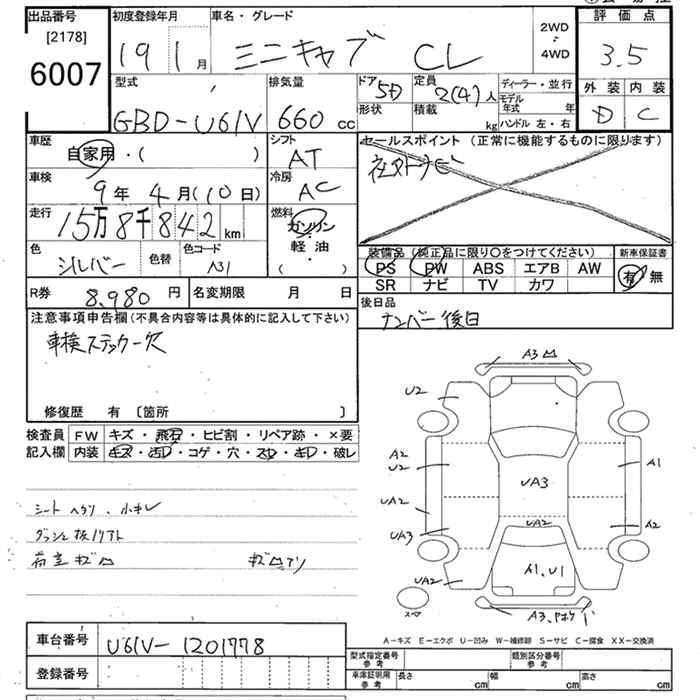 出品番号
[2178]
6007
初度登録年月
19 1月
車名・グレード
ミニキャブ CL
2WD
・
4WD
評価点
3.5
外装 内装
D C
型式
GBD-U61V
排気量
660 cc
ドア
5D
定員
2(4)人
形状
積載
kg
ディーラー・並行
モデル年式 年
ハンドル 左・右
車歴
自家用・( )
シフト
AT
車検
9年 4月(10日)
冷房
AC
走行
15万8千842km
燃料
ガソリン
・
軽油
・
( )
色
シルバー
色替
色コード
A31
セールスポイント(正常に機能するものに限ります)
装備品(純正品に限り○をつけてください)
PS PW ABS エアB AW
SR ナビ TV カワ
新車保証書
有・無
R券 8,980円
名変期限 月 日
後日品
ナンバー後日
注意事項申告欄(不具合内容等は具体的に記入して下さい)
車検ステッカー穴
修復歴 有 〔箇所 〕
検査員記入欄
FW キズ・飛石・ヒビ割・リペア跡・×要
内装 キズ・汚D・コゲ・穴・スレ・キD・破レ
シートヘタリ.小キレ
荷室キズ凹
キズ凹アリ
A3凹
U2
A2
U2
UA2
UA3
UA2
UA3
UA2
A1,U1
A1
A2
スペア
A3,
A-キズ E-エクボ U-凹み W-補修跡 S-サビ C-腐食 XX-交換済
車台番号 U61V-1201778
登録番号
型式指定番号 参考
類別区分番号 参考
車庫証明用 参考
長さ cm 幅 cm 高さ cm